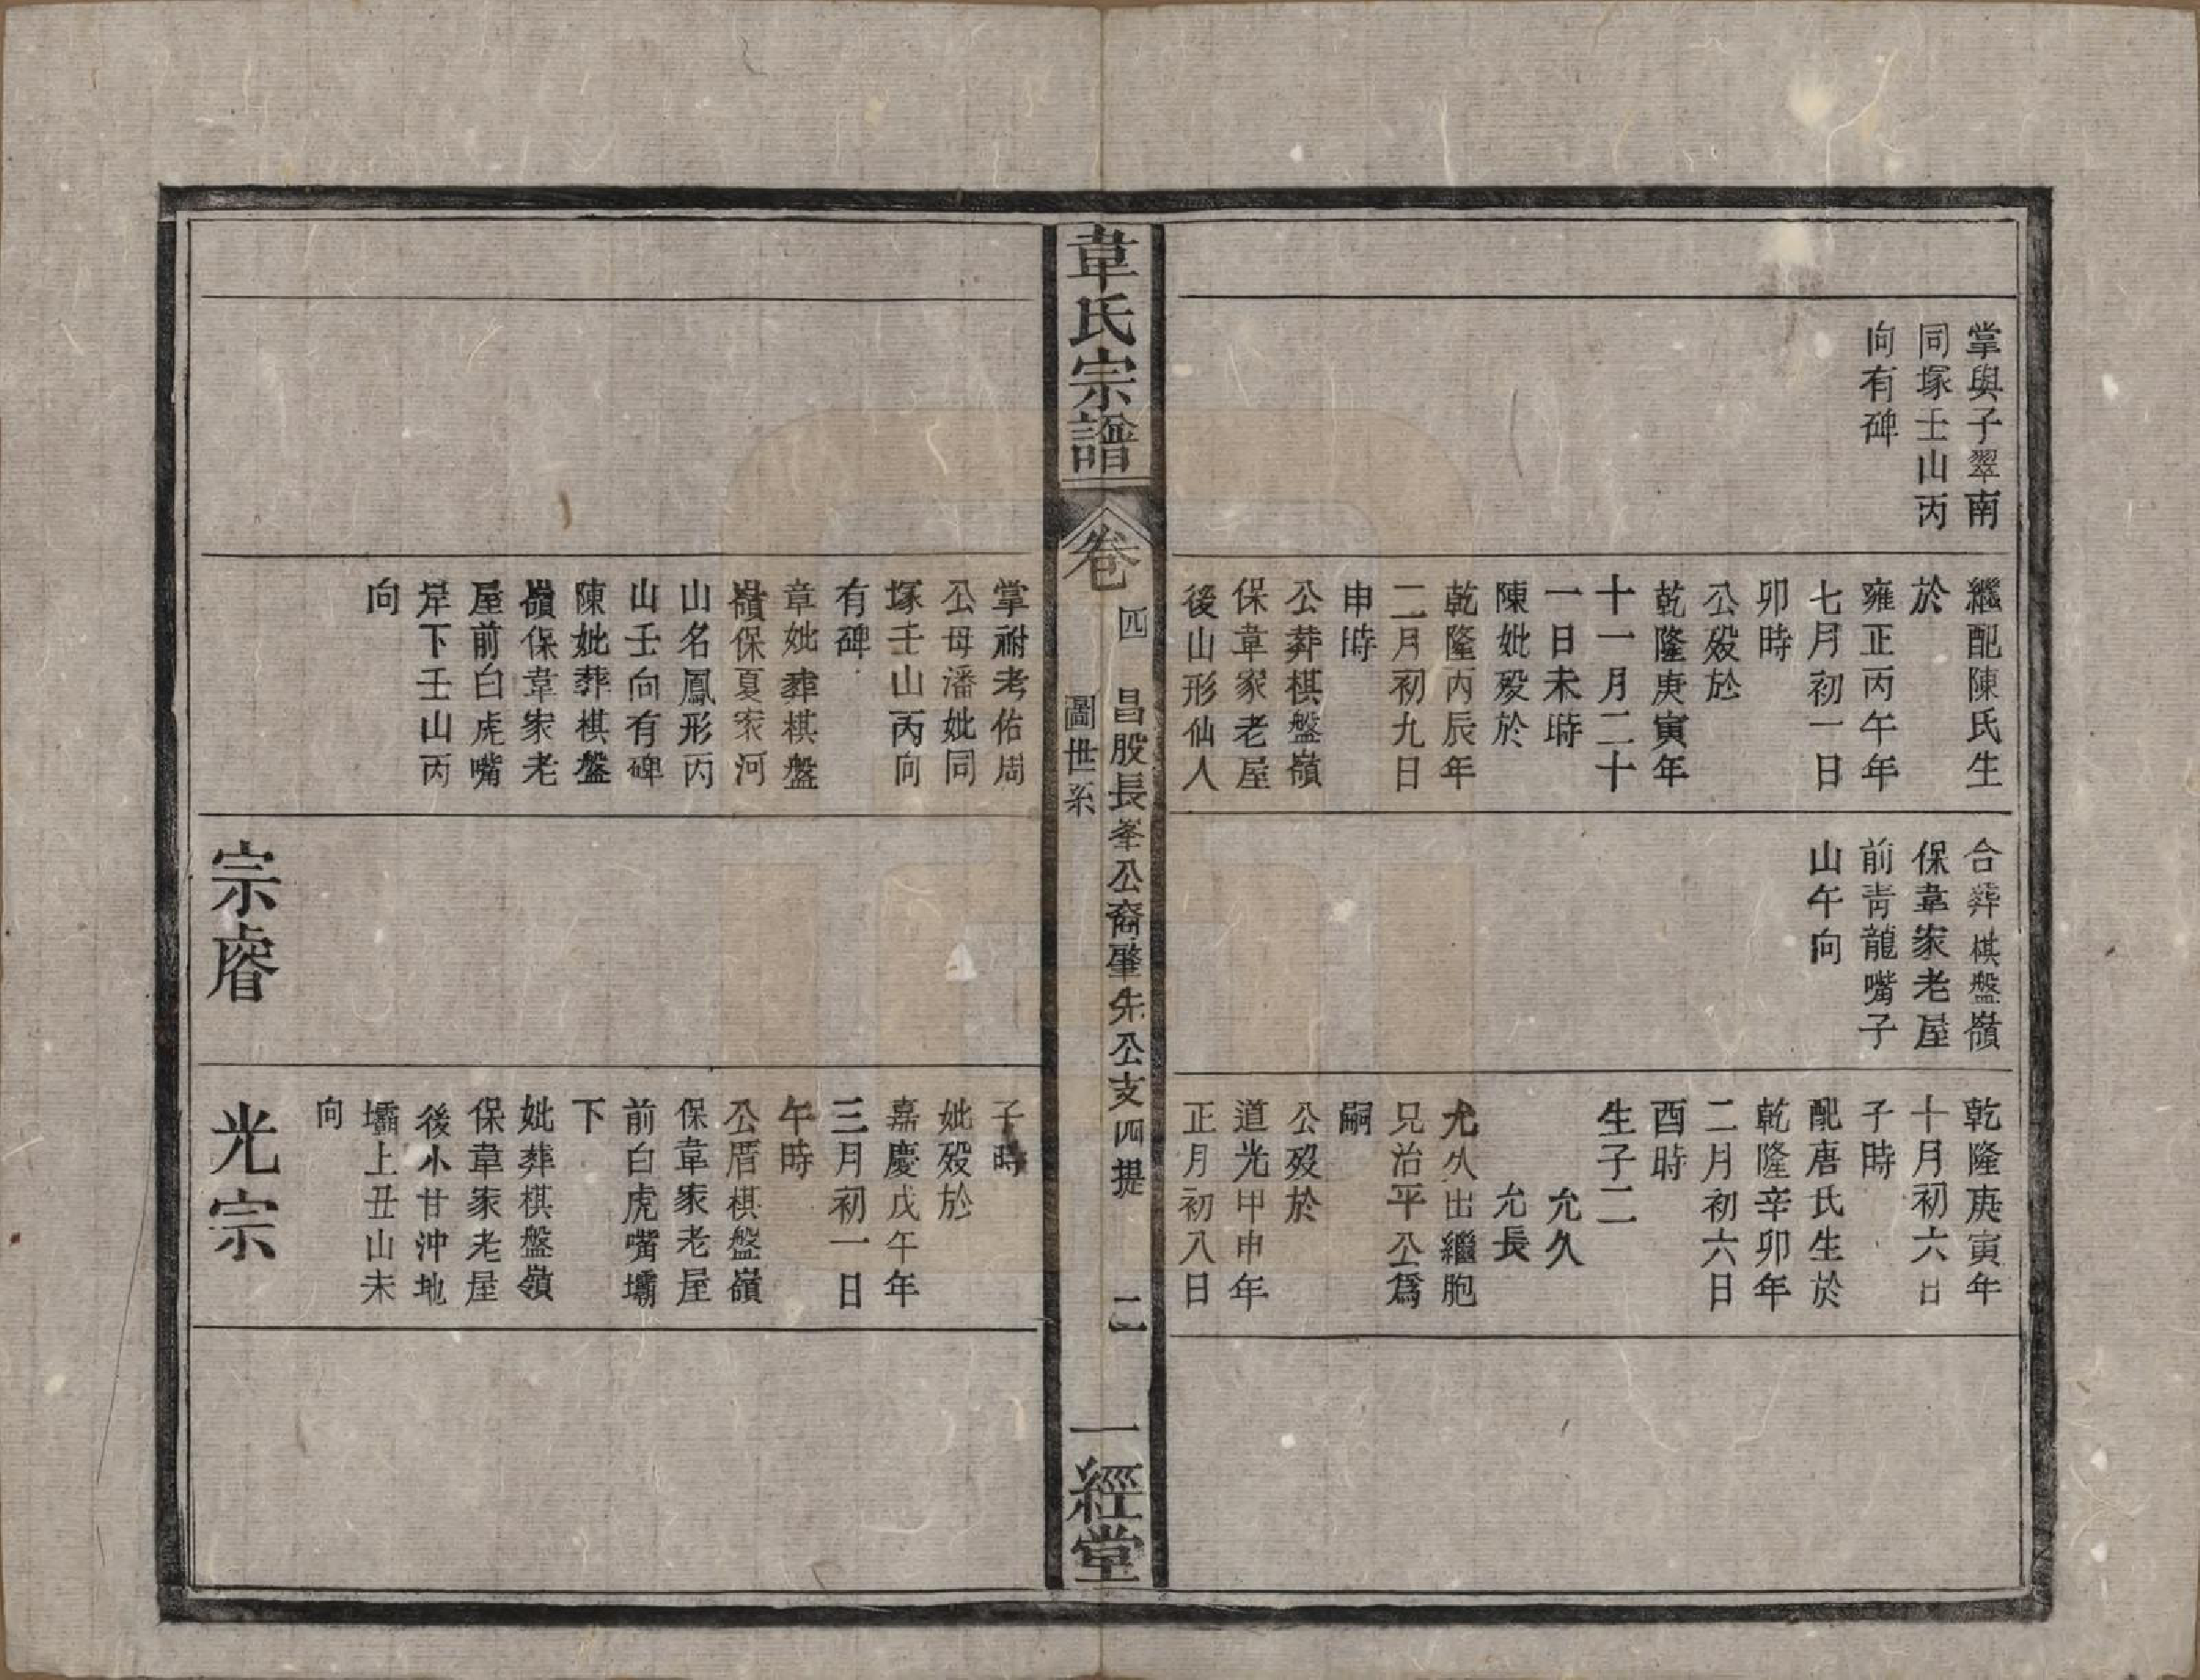 掌與子翠南
同塚壬山丙
向有碑
繼配陳氏生
於
雍正丙午年
七月初一日
卯時
公殁於
乾隆庚寅年
十一月二十
一日未時
陳妣殁於
乾隆丙辰年
二月初九日
申時
公葬棋盤嶺
保韋家老屋
後山形仙人
合葬棋盤嶺
保韋家老屋
前青龍嘴子
山午向
乾隆庚寅年
十月初六日
子時
配唐氏生於
乾隆辛卯年
二月初六日
酉時
生子二
允久
允長
允久出繼胞
兄治平公爲
嗣
公殁於
道光甲申年
正月初八日
韋氏宗譜
卷四
昌股長峯公裔肇先公支四提
圖世系
二
一經堂
掌祔考佑周
公母潘妣同
塚壬山丙向
有碑
章妣葬棋盤
嶺保夏家河
山名鳳形丙
山壬向有碑
陳妣葬棋盤
嶺保韋家老
屋前白虎嘴
岸下壬山丙
向
宗睿
子時
妣殁於
嘉慶戊午年
三月初一日
午時
公厝棋盤嶺
保韋家老屋
前白虎嘴壩
下
妣葬棋盤嶺
保韋家老屋
後小甘沖地
壩上丑山未
向
光宗